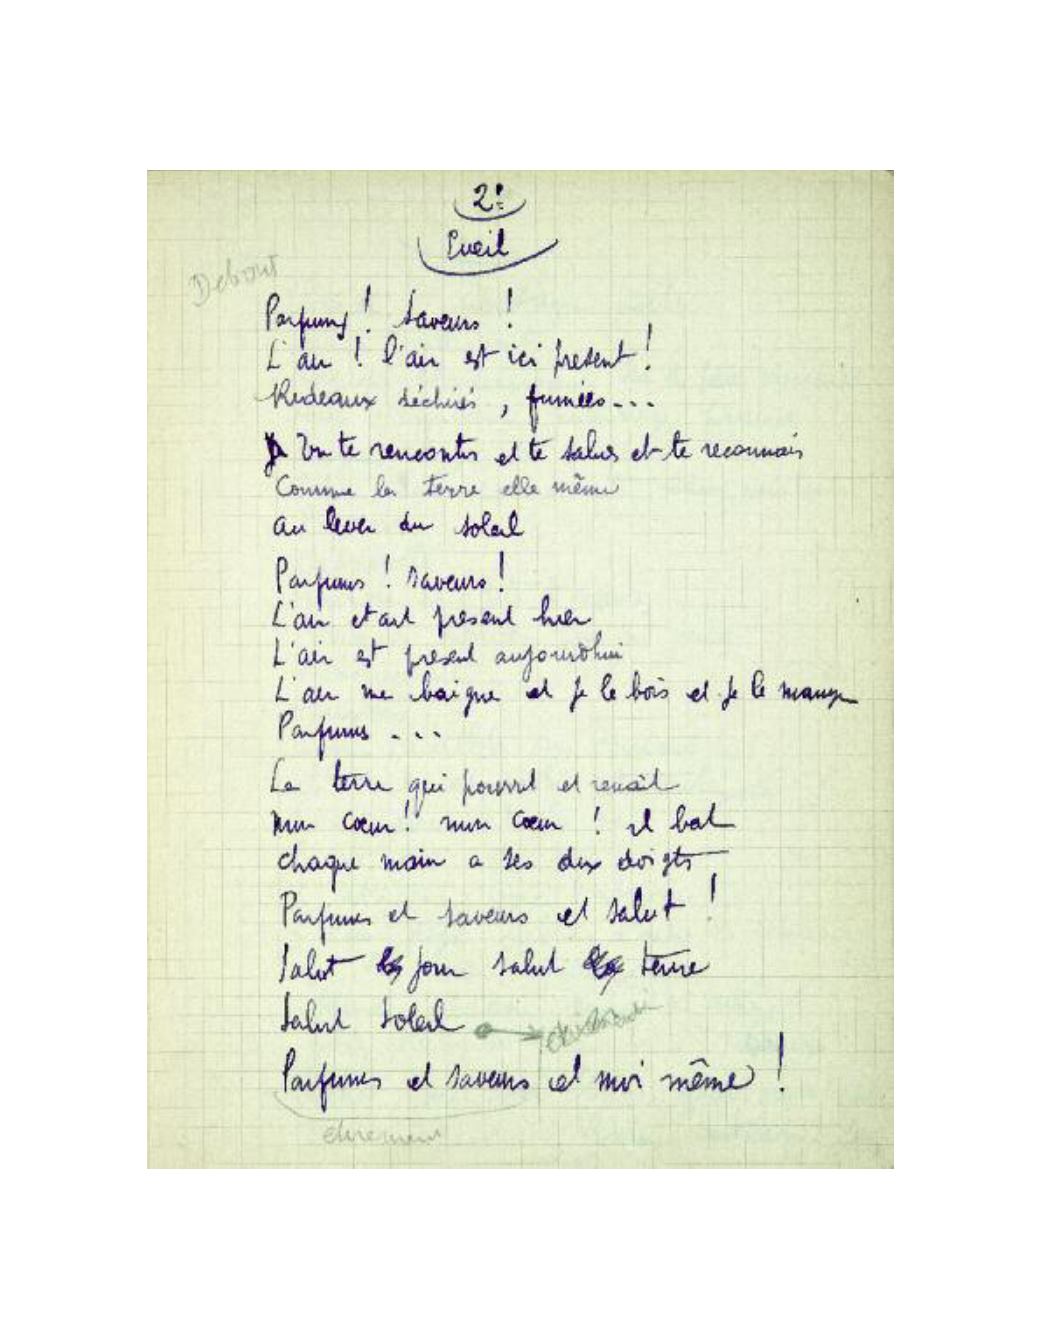 2:
Eveil
Debout
Parfums ! Saveurs !
L'air ! l'air est ici present !
Rideaux déchirés , fumées...
te rencontre et te salue et te reconnais
Comme la terre elle même
au lever du soleil
Parfums ! Saveurs !
L'air etait present hier
L'air est present aujourd'hui
L'air me baigne et je le bois et je le mange
Parfums ...
La terre qui pourrit et renait
mon coeur ! mon coeur ! il bat
chaque main a ses dix doigts
Parfums et saveurs et salut !
Salut jour salut terre
Salut Soleil
Parfums et saveurs et moi même !